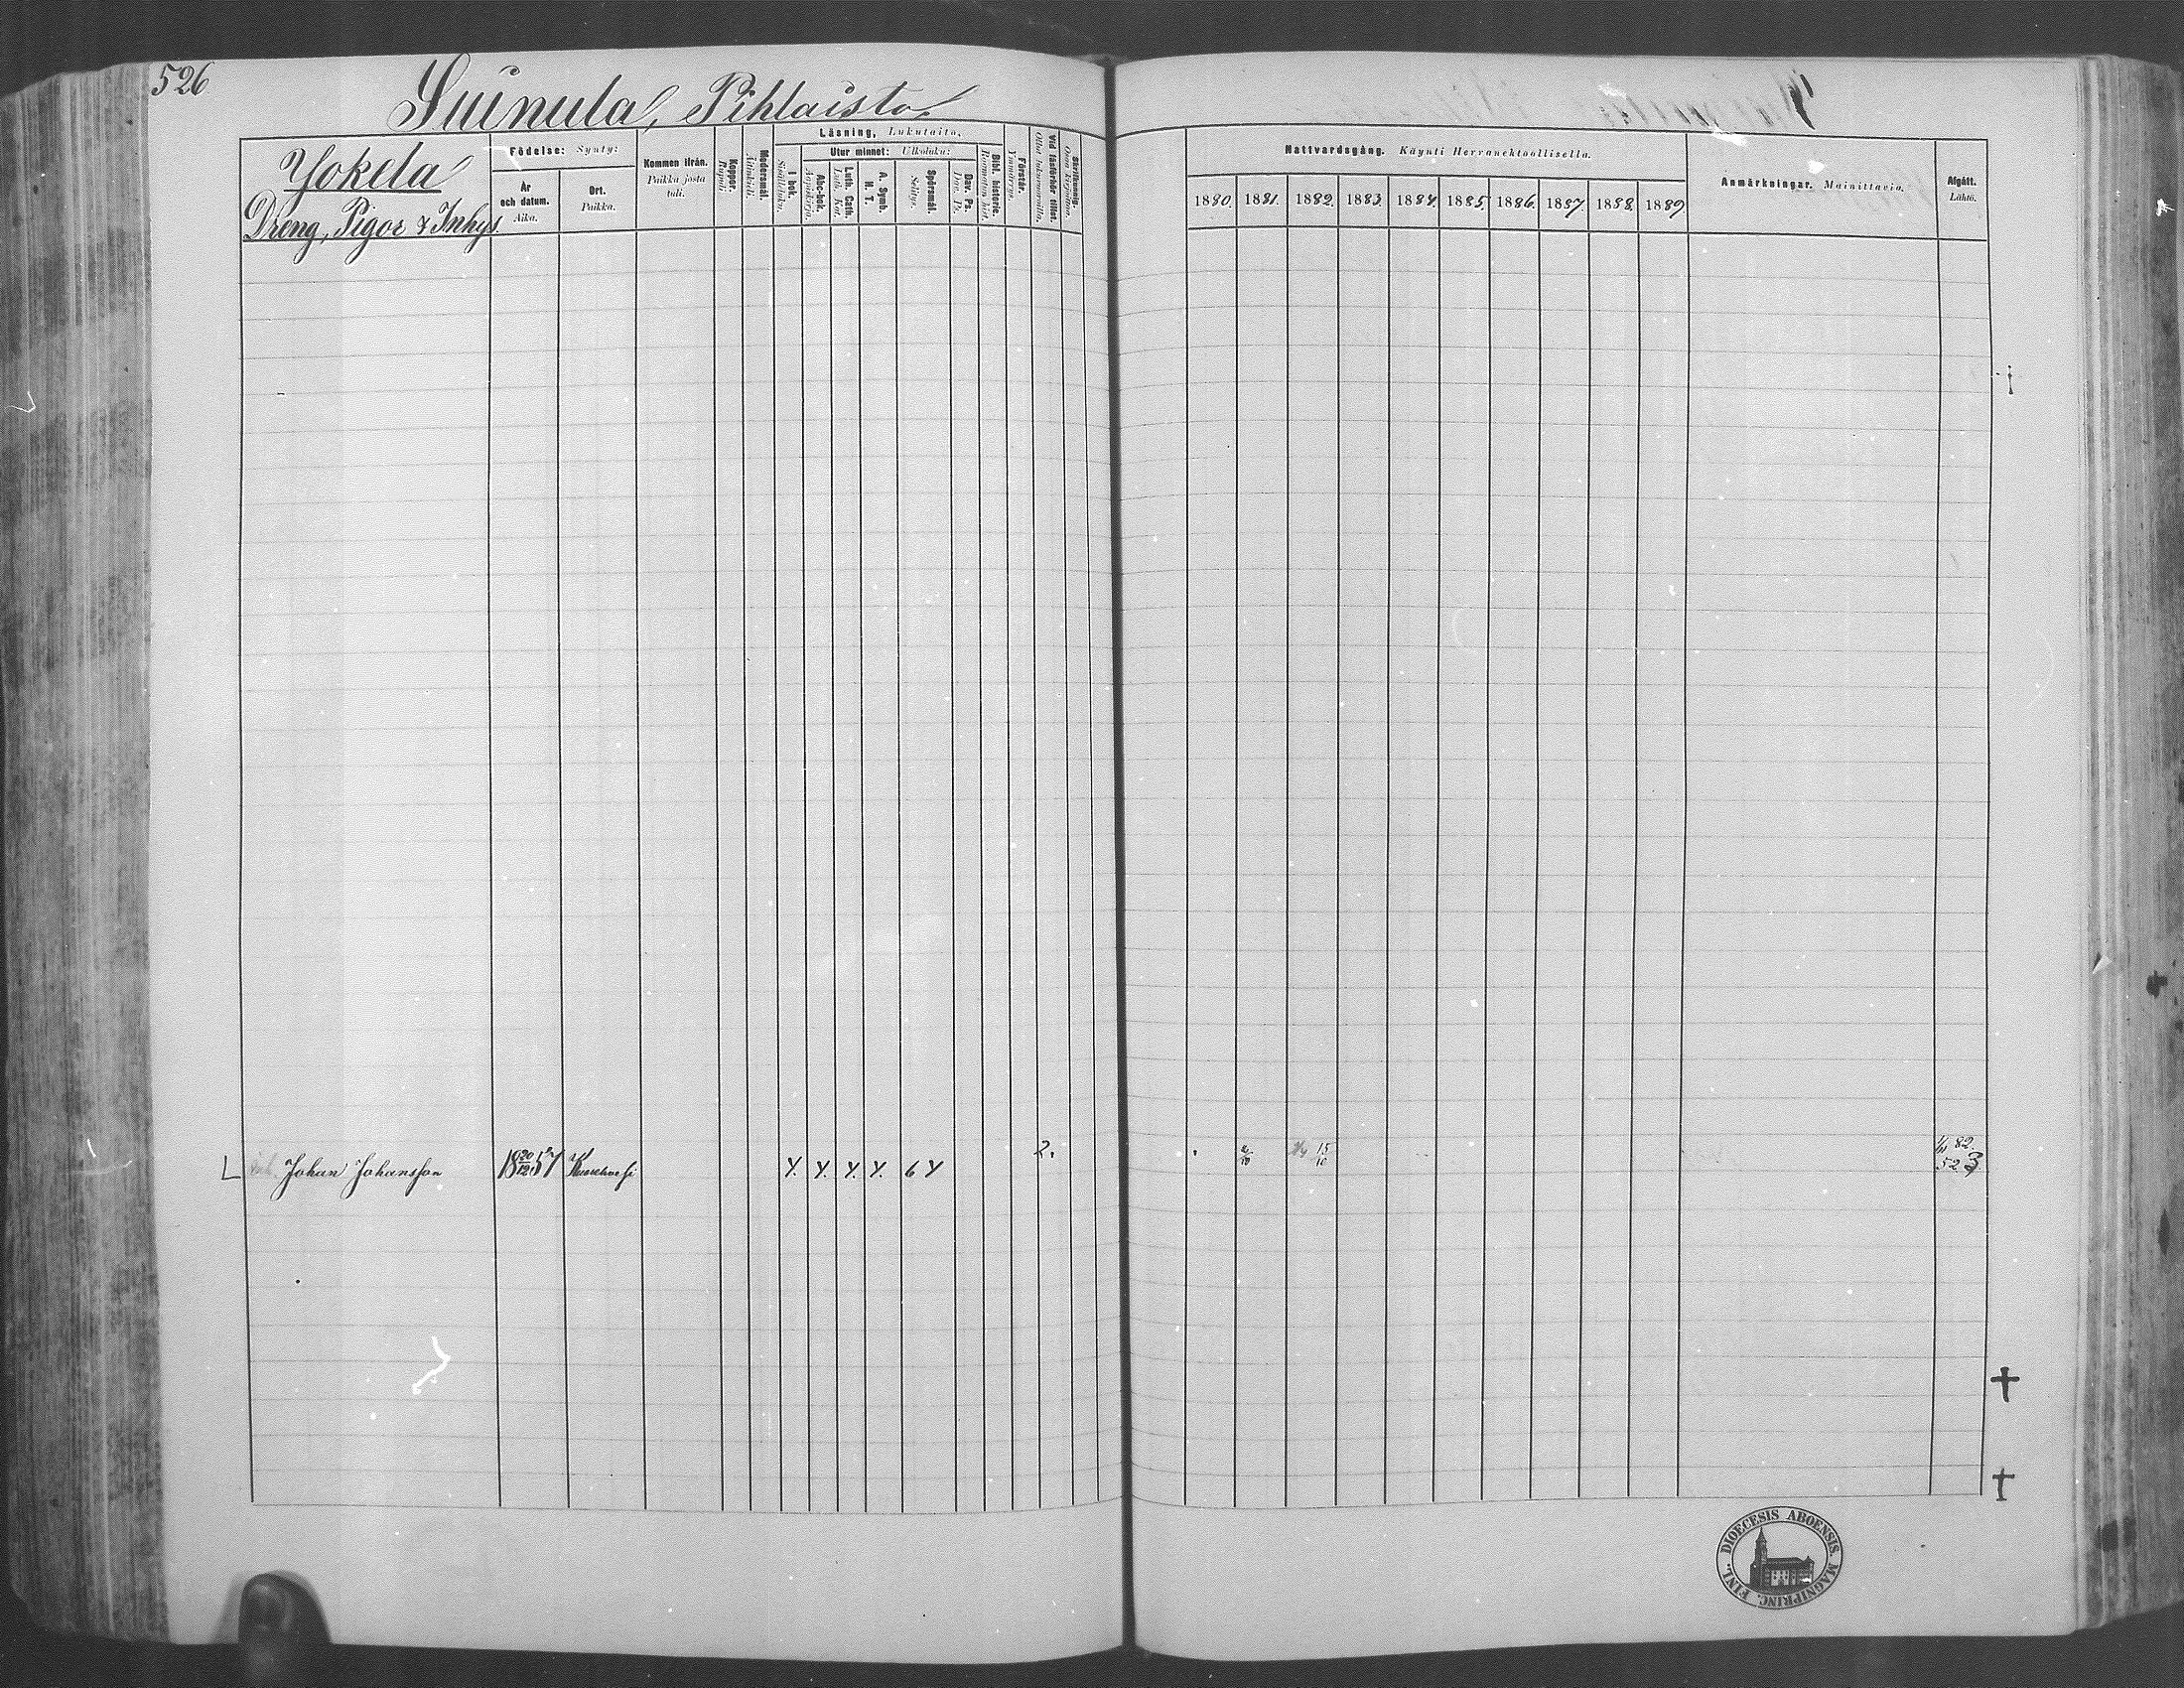 526
Suinula, Pihlaisto
Yokela
Dreng, Pigor & Inhys
Födelse: Synty:
År och datum. Aika.
Ort. Paikka.
Kommen ifrån. Paikka josta tuli.
Koppor. Rupuli.
Modersmål. Äitinkieli.
Läsning, Lukutaito.
I bok. Sisältäluku.
Utur minnet: Ulkoluku:
Abc-bok. Aapiskirja.
Luth. Cath. Luth. Kat.
A. Symb. H. T.
Spörsmål. Selitys.
Dav. Ps. Dav. Ps.
Bibl. historie. Raamatun hist.
Förstår. Ymmärrys.
Vid läsförhör tillst. Ollut lukuvuorolla.
Skrifkunnig. Osaa kirjoittaa.
Nattvardsgång. Käynti Herranehtoollisella.
1880. 1881. 1882. 1883. 1884. 1885. 1886. 1887. 1888. 1889
Anmärkningar. Mainittavia.
Afgått. Lähtö.
Johan Johansson 18 20/12 57 2. 15/10 82. 523
DIOECESIS ABOENSIS. MAGNI PRINC. FINL.